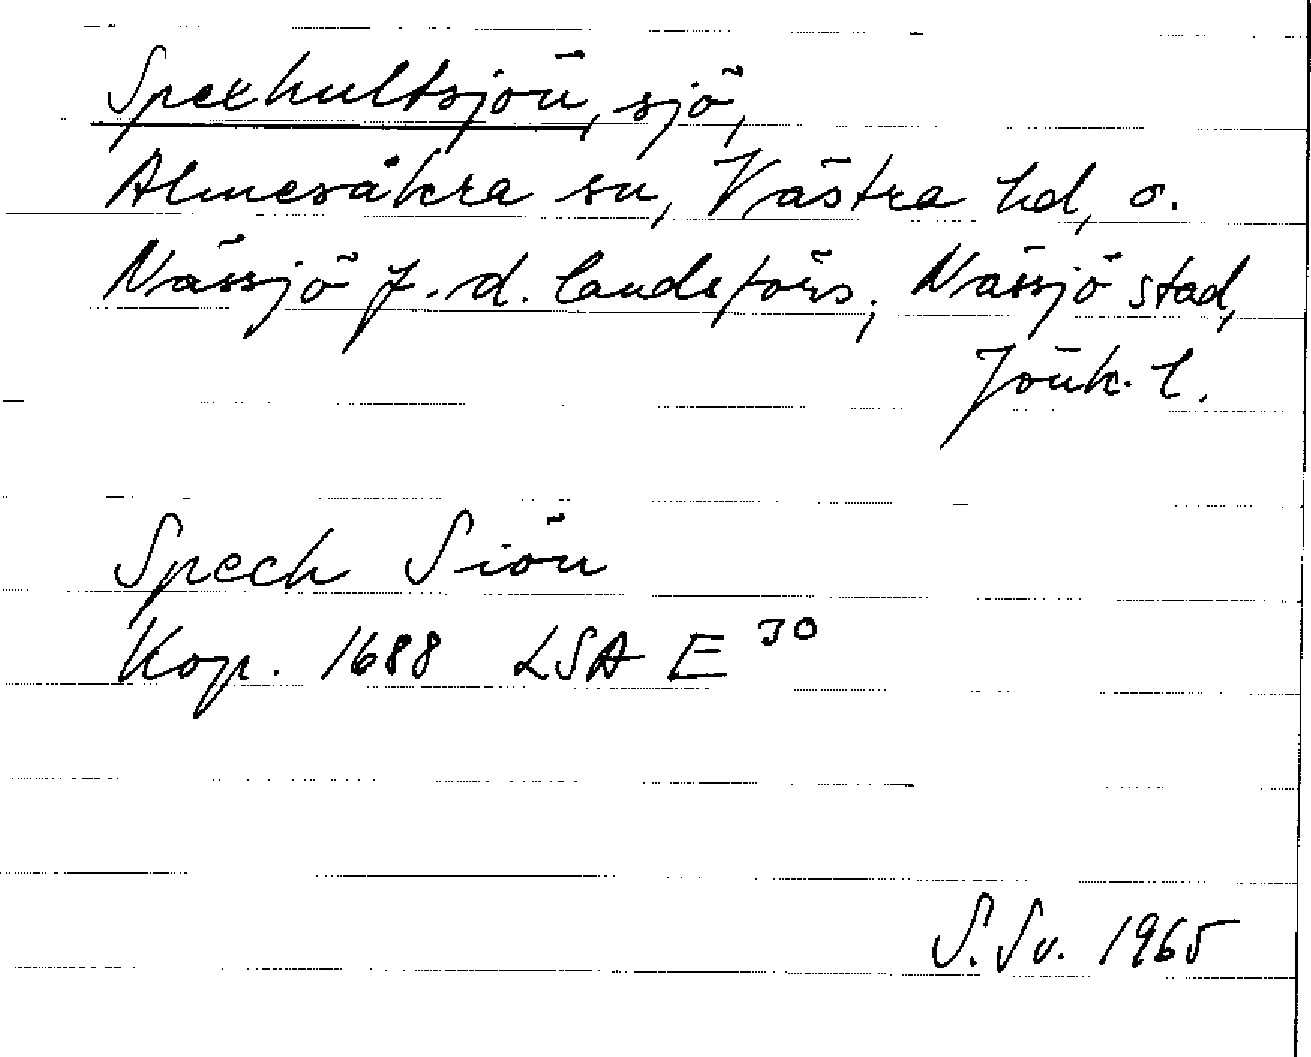 Spexhultsjön, sjö,
Almesåkra sn, Västra hd, o.
Nässjö f.d. landsförs; Nässjö stad,
Jönk. l.
Spech Siön
Kop. 1688 LSA E 30
S. Sv. 1965